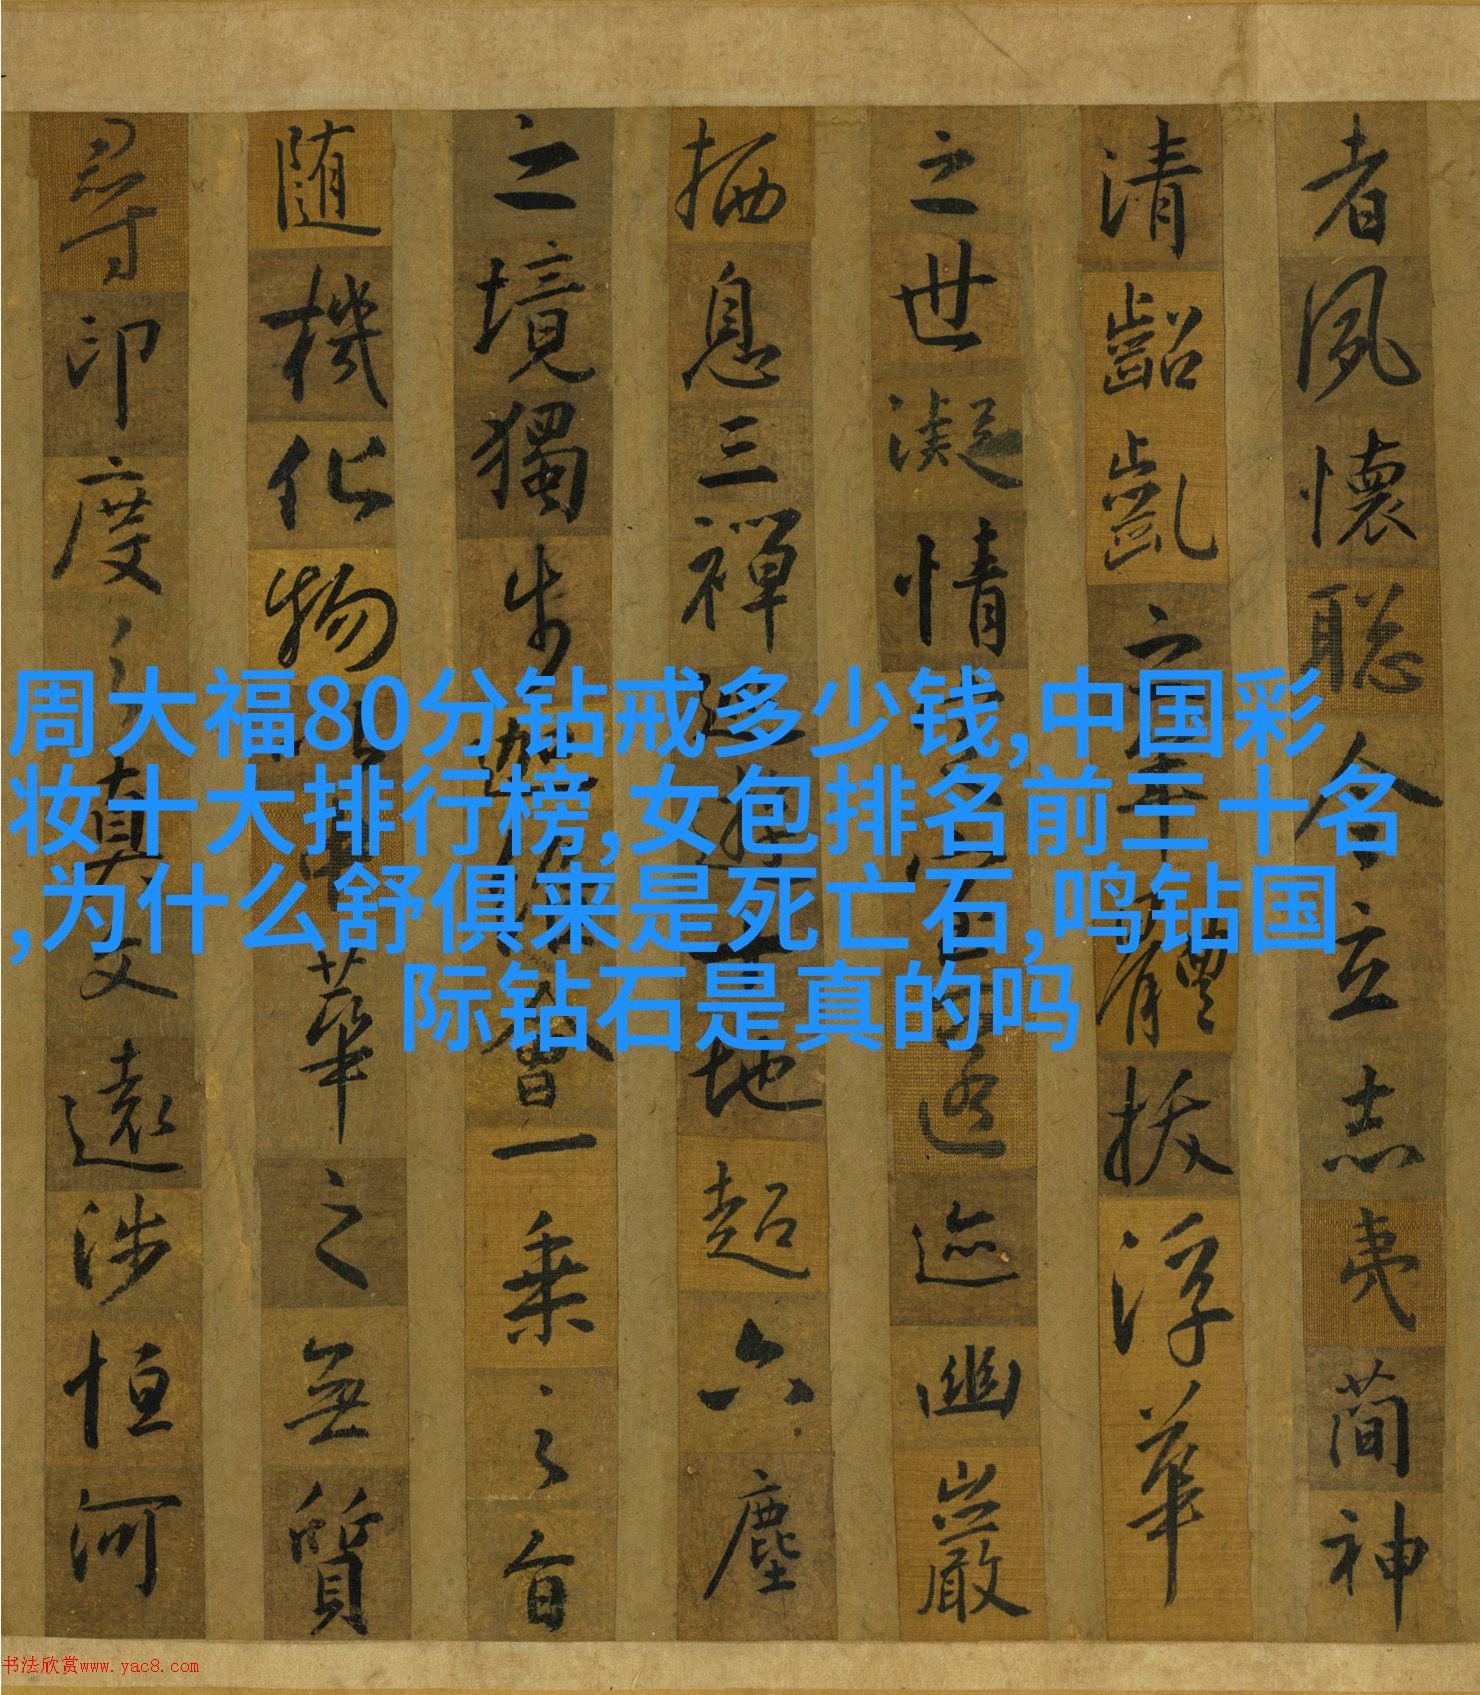 者夙懷聡令立志夷簡神
清齠齔之年體拔浮華
之世凝情定室匿迹幽巖
栖息三禪巡遊十地超六塵
之境獨步迦維會一乗之旨
随機化物以中華之無質
尋印度之真文遠涉恒河
周大福80分钻戒多少钱,中国彩
妆十大排行榜,女包排名前三十名
,为什么舒俱来是死亡石,鸣钻国
际钻石是真的吗
书法欣赏www.yac8.com